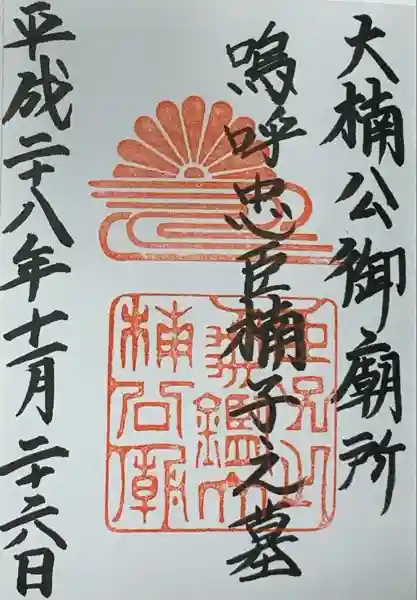 大楠公御廟所
嗚呼忠臣楠子之墓
平成二十八年十一月二十六日
楠公廟